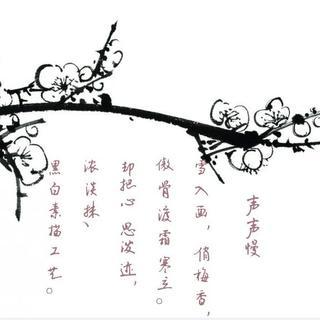 声声慢
雪入画，俏梅香，
傲骨凌霜寒立。
却把心思泼迹，
浓淡抹、
黑白素描工艺。